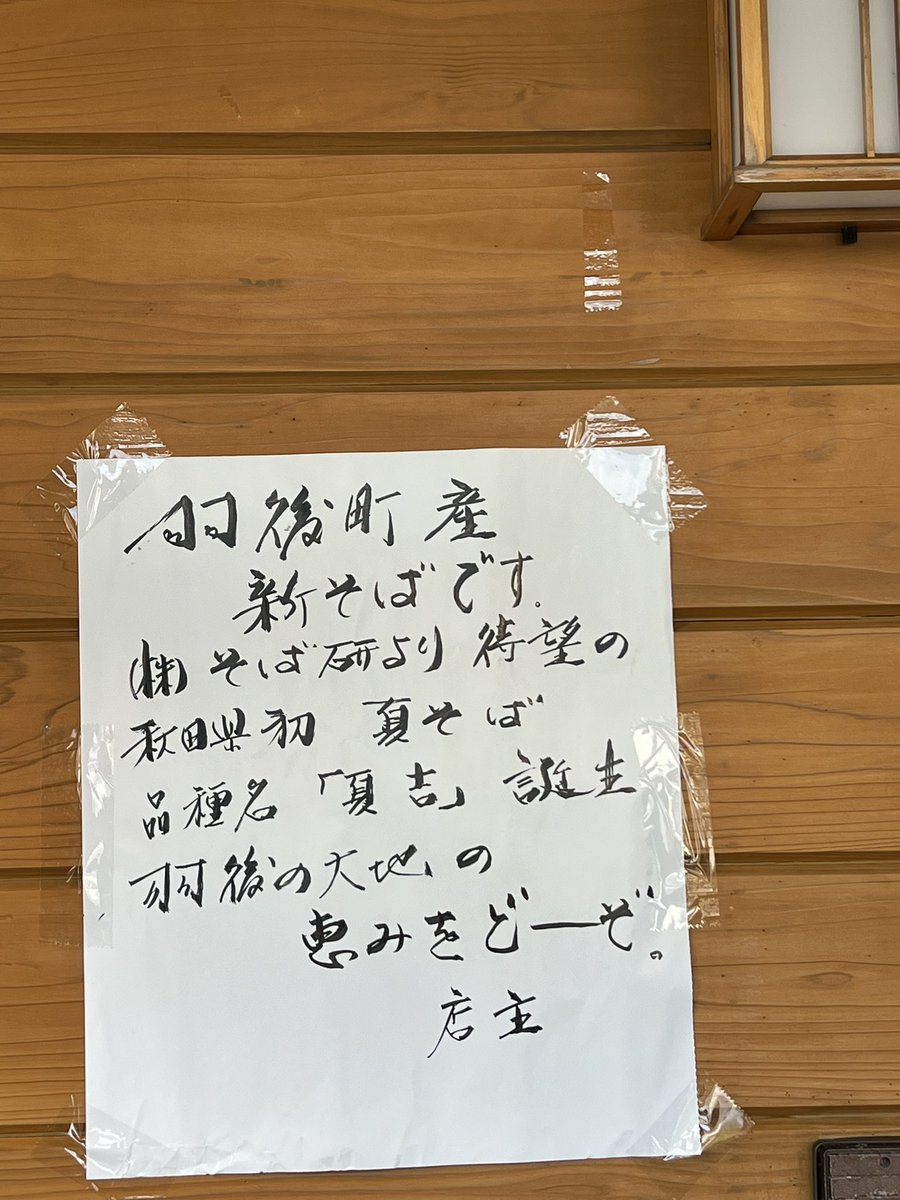 羽後町産
新そばです.
(株)そば研より 待望の
秋田県初 夏そば
品種名「夏吉」誕生
羽後の大地の
恵みをどーぞ。
店主